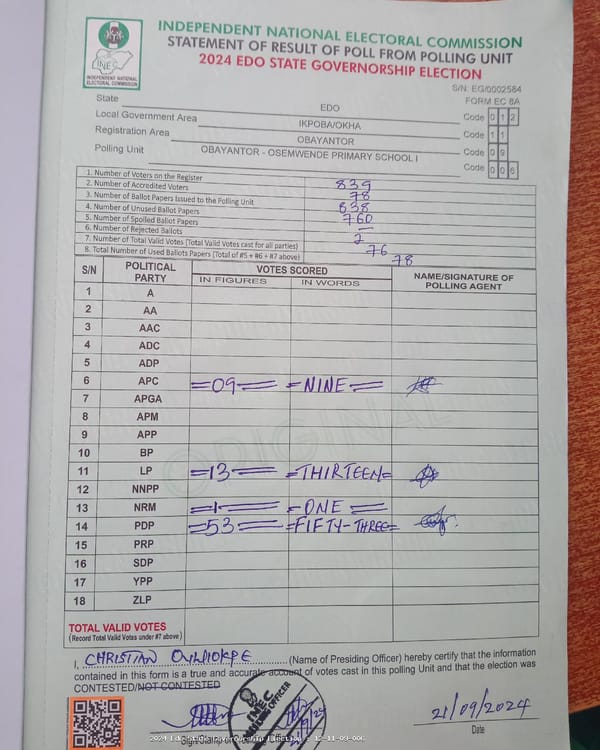 INDEPENDENT NATIONAL ELECTORAL COMMISSION
STATEMENT OF RESULT OF POLL FROM POLLING UNIT
2024 EDO STATE GOVERNORSHIP ELECTION
INEC
INDEPENDENT NATIONAL
ELECTORAL COMMISSION
S/N: EG/0002584
FORM EC 8A
State EDO Code 0 1 2
Local Government Area IKPOBA/OKHA Code 1 1
Registration Area OBAYANTOR Code 0 9
Polling Unit OBAYANTOR - OSEMWENDE PRIMARY SCHOOL I Code 0 0 6
1. Number of Voters on the Register 839
2. Number of Accredited Voters 78
3. Number of Ballot Papers Issued to the Polling Unit 838
4. Number of Unused Ballot Papers 760
5. Number of Spoiled Ballot Papers –
6. Number of Rejected Ballots 2
7. Number of Total Valid Votes (Total Valid Votes cast for all parties) 76
8. Total Number of Used Ballots Papers (Total of #5 + #6 + #7 above) 78
S/N POLITICAL PARTY VOTES SCORED NAME/SIGNATURE OF POLLING AGENT
IN FIGURES IN WORDS
1 A
2 AA
3 AAC
4 ADC
5 ADP
6 APC =09= =NINE=
7 APGA
8 APM
9 APP
10 BP
11 LP =13= =THIRTEEN=
12 NNPP
13 NRM =1= =ONE=
14 PDP =53= =FIFTY-THREE=
15 PRP
16 SDP
17 YPP
18 ZLP
ORIGINAL
TOTAL VALID VOTES
(Record Total Valid Votes under #7 above)
I, CHRISTIAN (Name of Presiding Officer) hereby certify that the information
contained in this form is a true and accurate account of votes cast in this polling Unit and that the election was
CONTESTED/NOT CONTESTED
INEC
21/09/2024
Date
2024 Edo State Governorship Election - 12-11-09-006